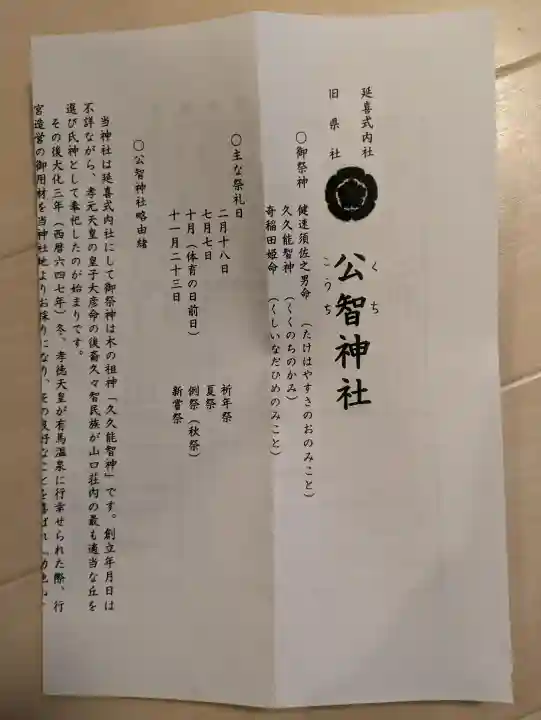 延喜式内社
旧県社
公智神社
くち
こうち
○御祭神
健速須佐之男命 (たけはやすさのおのみこと)
久久能智神 (くくのちのかみ)
奇稲田姫命 (くしいなだひめのみこと)
○主な祭礼日
二月十八日 祈年祭
七月七日 夏祭
十月(体育の日前日) 例祭(秋祭)
十一月二十三日 新嘗祭
○公智神社略由緒
当神社は延喜式内社にして御祭神は木の祖神「久久能智神」です。創立年月日は
不詳ながら、孝元天皇の皇子大彦命の後裔久々智民族が山口荘内の最も適当な丘を
選び氏神として奉祀したのが始まりです。
その後大化三年(西暦六四七年)冬、孝徳天皇が有馬温泉に行幸せられた際、行
宮造営の御用材を当神社地よりお採りになり、その良好なことを喜ばれ「功